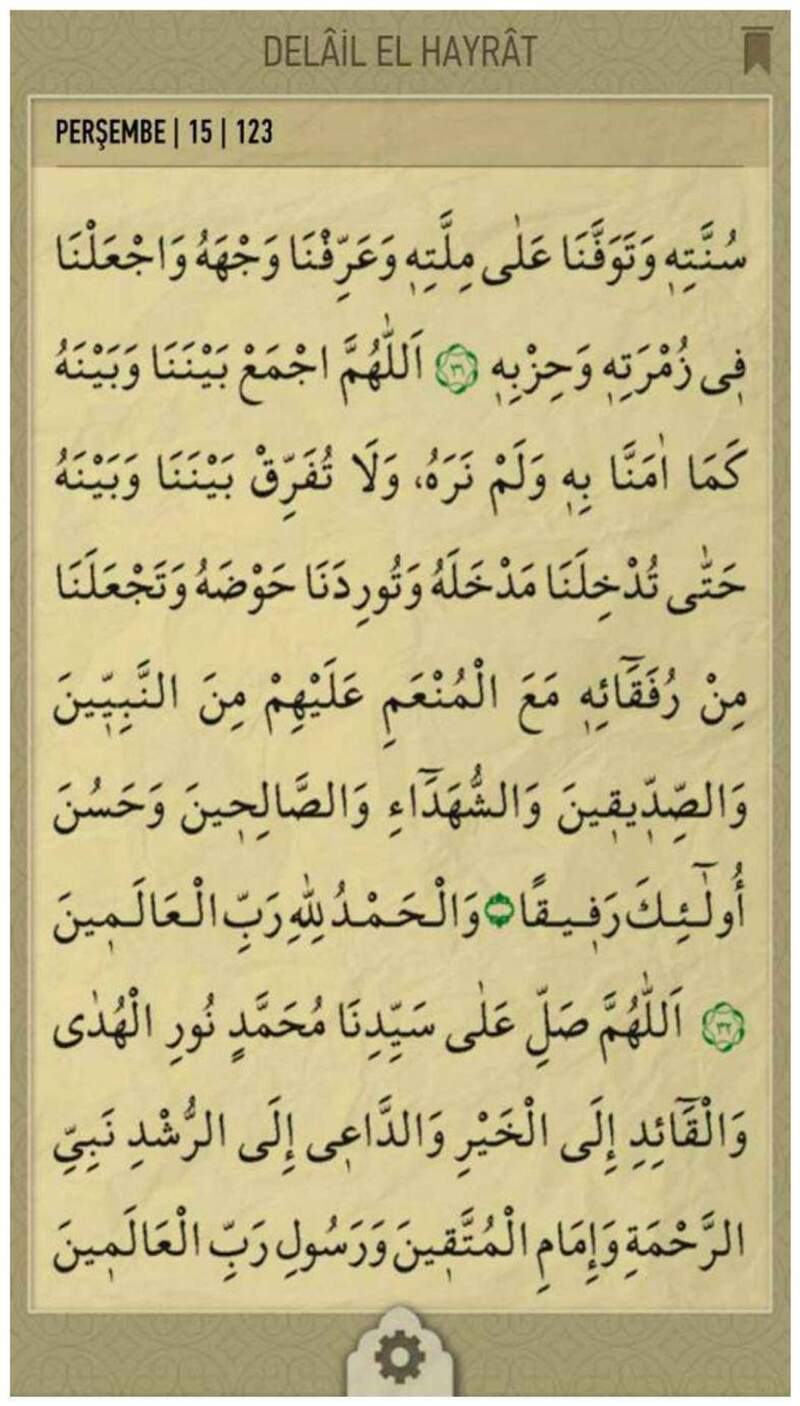 DELÂİL EL HAYRÂT
PERŞEMBE | 15 | 123
سُنَّتِهٖ وَتَوَفَّنَا عَلٰى مِلَّتِهٖ وَعَرِّفْنَا وَجْهَهُ وَاجْعَلْنَا
فٖى زُمْرَتِهٖ وَحِزْبِهٖ ٣١ اَللّٰهُمَّ اجْمَعْ بَيْنَنَا وَبَيْنَهُ
كَمَا اٰمَنَّا بِهٖ وَلَمْ نَرَهُ، وَلَا تُفَرِّقْ بَيْنَنَا وَبَيْنَهُ
حَتّٰى تُدْخِلَنَا مَدْخَلَهُ وَتُورِدَنَا حَوْضَهُ وَتَجْعَلَنَا
مِنْ رُفَقَٓائِهٖ مَعَ الْمُنْعَمِ عَلَيْهِمْ مِنَ النَّبِيّٖينَ
وَالصِّدّٖيقٖينَ وَالشُّهَدَٓاءِ وَالصَّالِحٖينَ وَحَسُنَ
أُولٰٓئِكَ رَفٖيقًا وَالْحَمْدُ لِلّٰهِ رَبِّ الْعَالَمٖينَ
٣٢ اَللّٰهُمَّ صَلِّ عَلٰى سَيِّدِنَا مُحَمَّدٍ نُورِ الْهُدٰى
وَالْقَٓائِدِ إِلَى الْخَيْرِ وَالدَّاعٖى إِلَى الرُّشْدِ نَبِيِّ
الرَّحْمَةِ وَإِمَامِ الْمُتَّقٖينَ وَرَسُولِ رَبِّ الْعَالَمٖينَ